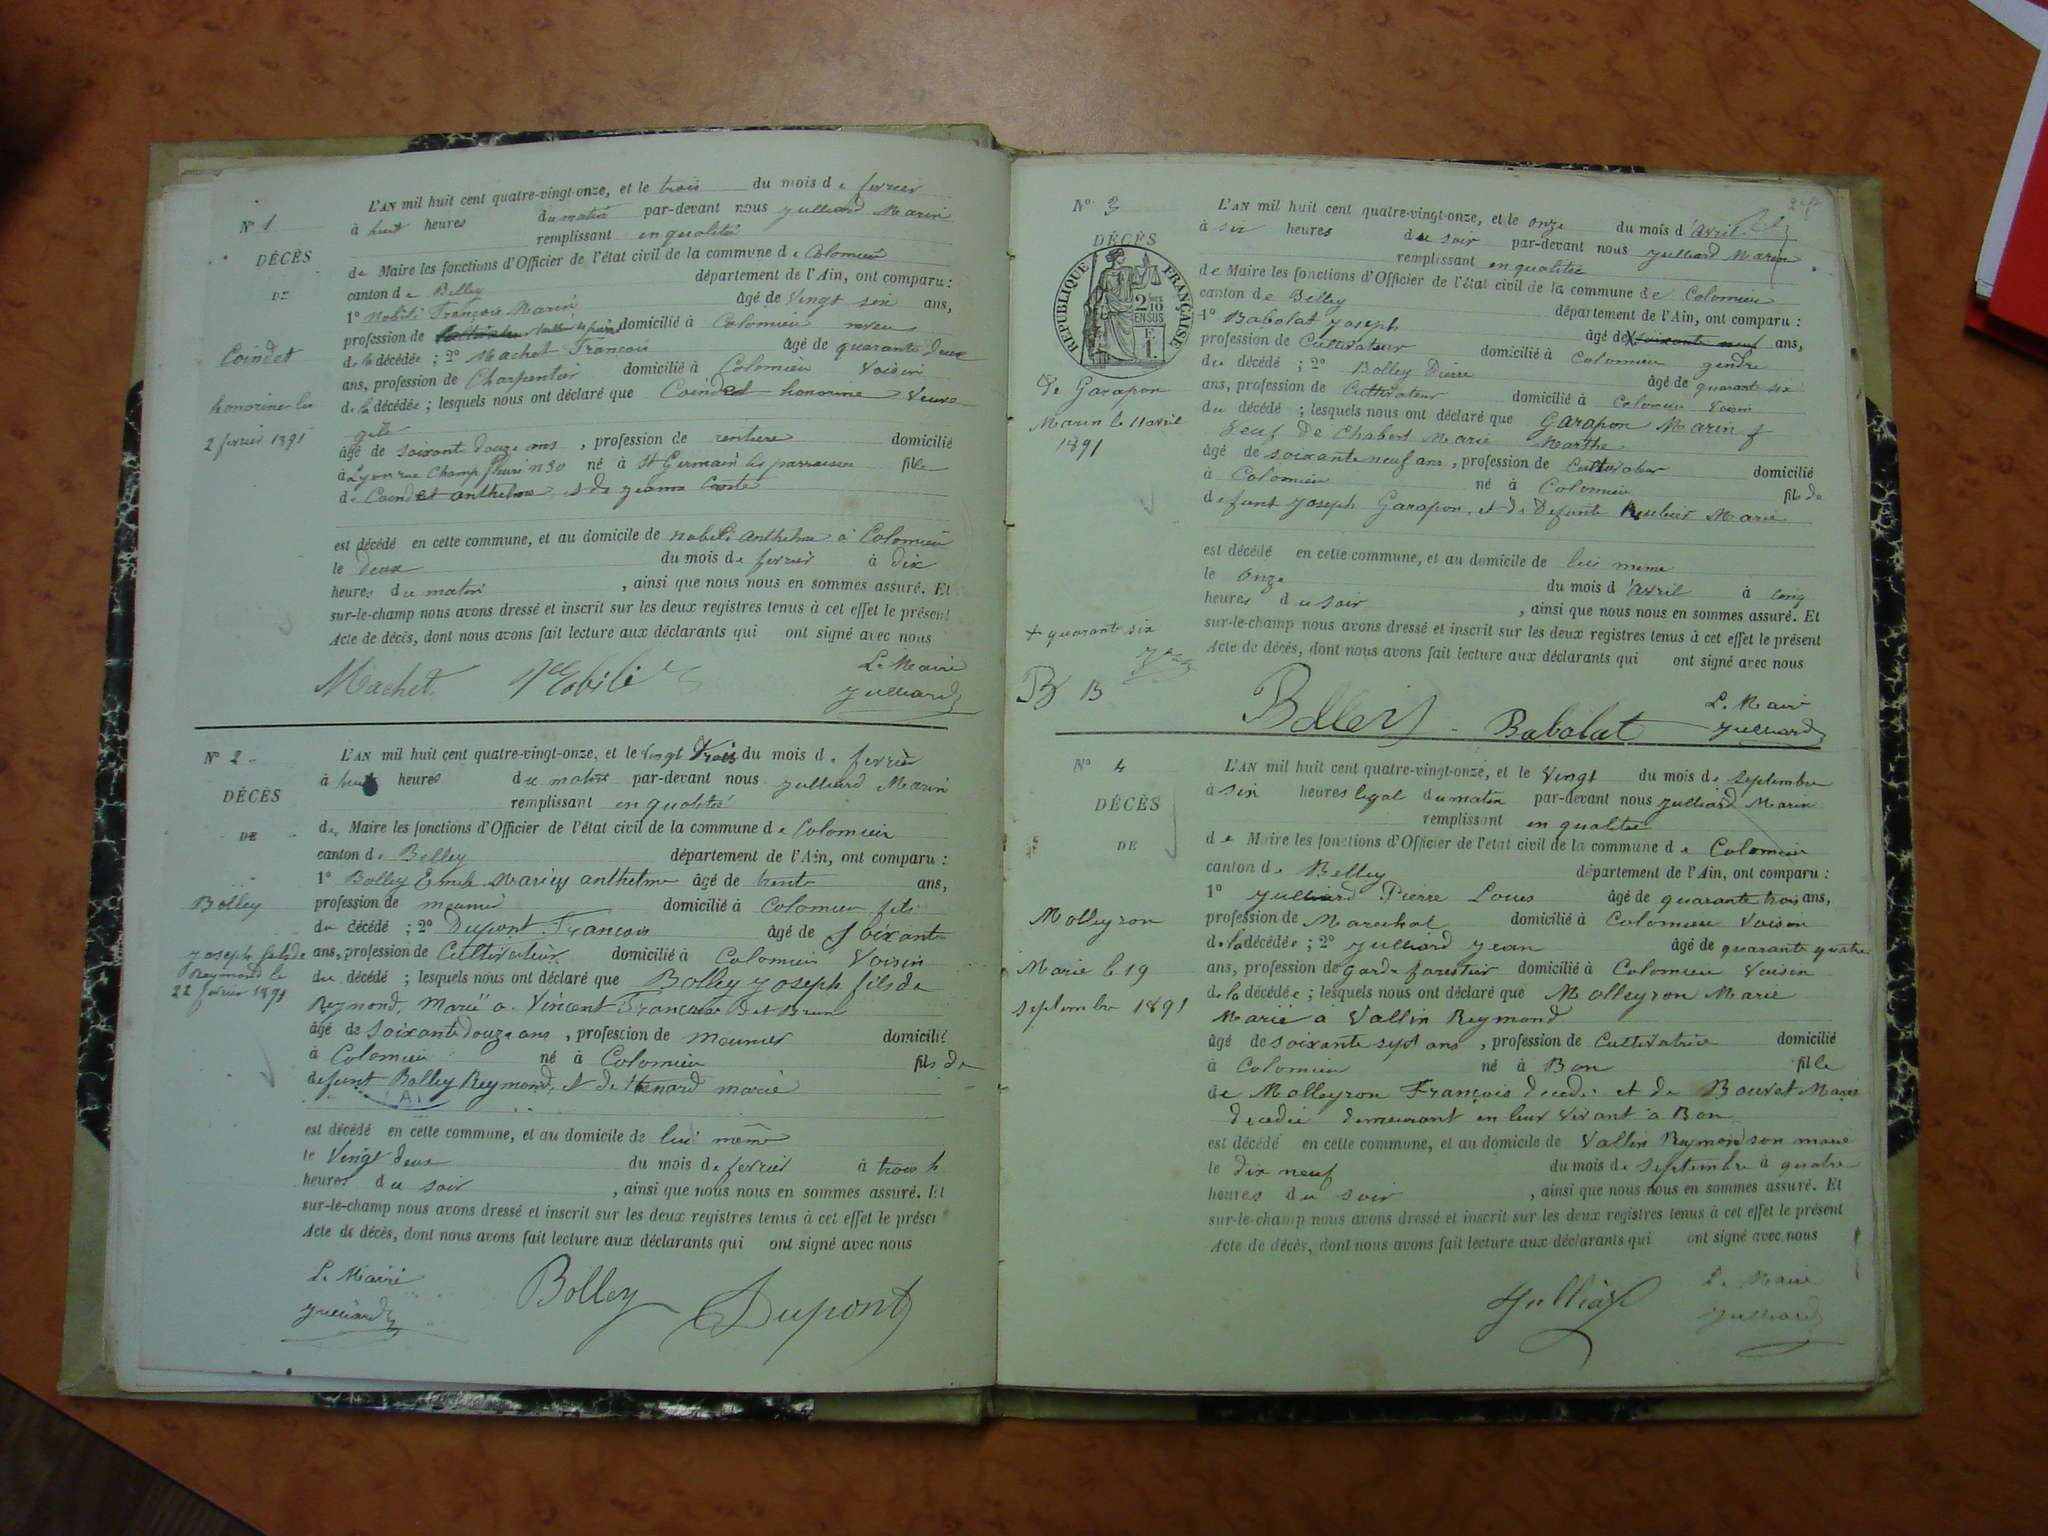 N° 1
DÉCÈS
DE
Coindet
honorine le
2 fevrier 1891
L'AN mil huit cent quatre-vingt-onze, et le trois du mois de fevrier
à huit heures du matin par-devant nous Julliard Marin
remplissant en qualité
de Maire les fonctions d'Officier de l'état civil de la commune de Colomieu
canton de Belley département de l'Ain, ont comparu :
1° Nobili François Marin âgé de Vingt six ans,
profession de domicilié à Colomieu neveu
de la décédée ; 2° Machet Francois âgé de quarante deux
ans, profession de Charpentier domicilié à Colomieu Voisin
de la décédée ; lesquels nous ont déclaré que Coindet honorine Veuve
âgée de soixante douze ans, profession de rentiere domicilié
à Lyon rue Champ fleuri n 30 né à St Germain les parraisses fille
de Coindet anthelme et de jeanne
est décédé en cette commune, et au domicile de nobili anthelme à Colomieu
le deux du mois de fevrier à dix
heures du matin, ainsi que nous nous en sommes assuré. Et
sur-le-champ nous avons dressé et inscrit sur les deux registres tenus à cet effet le présent
Acte de décès, dont nous avons fait lecture aux déclarants qui ont signé avec nous
Machet Nobili Le Maire
Julliard
N° 2
DÉCÈS
DE
Bolley
joseph fils de
Reymond le
22 fevrier 1891
L'AN mil huit cent quatre-vingt-onze, et le vingt trois du mois de fevrier
à huit heures du matin par-devant nous Julliard Marin
remplissant en qualité
de Maire les fonctions d'Officier de l'état civil de la commune de Colomieu
canton de Belley département de l'Ain, ont comparu :
1° Bolley Emile Marius anthelme âgé de trente ans,
profession de meunier domicilié à Colomieu fils
du décédé ; 2° Dupont Francois âgé de soixante
ans, profession de Cultivateur domicilié à Colomieu Voisin
du décédé ; lesquels nous ont déclaré que Bolley joseph fils de
Reymond, Marié a Vincent Brun
âgé de soixante douze ans, profession de meunier domicilié
à Colomieu né à Colomieu fils de
defunt Bolley Reymond, et de marie
est décédé en cette commune, et au domicile de lui même
le Vingt deux du mois de fevrier à trois h
heures du soir, ainsi que nous nous en sommes assuré. Et
sur-le-champ nous avons dressé et inscrit sur les deux registres tenus à cet effet le présent
Acte de décès, dont nous avons fait lecture aux déclarants qui ont signé avec nous
Le Maire
Julliard Bolley Dupont
N° 3
DÉCÈS
RÉPUBLIQUE FRANÇAISE
2/10 EN SUS
1 F.
De Garapon
Marin le 11 avril
1891
+ quarante six
B B
L'AN mil huit cent quatre-vingt-onze, et le onze du mois d'Avril
à six heures du soir par-devant nous Julliard Marin
remplissant en qualitée
de Maire les fonctions d'Officier de l'état civil de la commune de Colomieu
canton de Belley département de l'Ain, ont comparu :
1° Babolat Joseph âgé de X soixante neuf ans,
profession de Cultivateur domicilié à Colomieu gendre
du décédé ; 2° Bolley Pierre âgé de quarante six
ans, profession de Cultivateur domicilié à Colomieu Voisin
du décédé ; lesquels nous ont déclaré que Garapon Marin
Veuf de Chabert Marie Marthe
âgé de soixante neuf ans, profession de Cultivateur domicilié
à Colomieu né à Colomieu fils de
defunt Joseph Garapon, et de Defunte Marie
est décédé en cette commune, et au domicile de lui meme
le onze du mois d'Avril à cinq
heures du soir, ainsi que nous nous en sommes assuré. Et
sur-le-champ nous avons dressé et inscrit sur les deux registres tenus à cet effet le présent
Acte de décès, dont nous avons fait lecture aux déclarants qui ont signé avec nous
Bolley Babolat Le Maire
Julliard
N° 4
DÉCÈS
DE
Molleyron
Marie le 19
septembre 1891
L'AN mil huit cent quatre-vingt-onze, et le Vingt du mois de septembre
à six heures legal du matin par-devant nous Julliard Marin
remplissant en qualitée
de Maire les fonctions d'Officier de l'état civil de la commune de Colomieu
canton de Belley département de l'Ain, ont comparu :
1° Julliard Pierre Louis âgé de quarante trois ans,
profession de Marechal domicilié à Colomieu Voisin
de la décédée ; 2° Julliard Jean âgé de quarante quatre
ans, profession de garde forestier domicilié à Colomieu Voisin
de la décédée ; lesquels nous ont déclaré que Molleyron Marie
Marié a Vallin Reymond
âgé de soixante sept ans, profession de Cultivatrice domicilié
à Colomieu né à Bon fille
de Molleyron François decedé et de Bouvet Marie
decedée demeurant en leur vivant a Bon
est décédé en cette commune, et au domicile de Vallin Reymond son marie
le dix neuf du mois de septembre à quatre
heures du soir, ainsi que nous nous en sommes assuré. Et
sur-le-champ nous avons dressé et inscrit sur les deux registres tenus à cet effet le présent
Acte de décès, dont nous avons fait lecture aux déclarants qui ont signé avec nous
Julliard Le Maire
Julliard